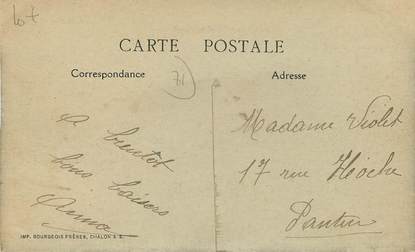 lot
CARTE POSTALE
Correspondance
71
Adresse
A bientôt
bons baisers
Anna
Madame Violet
17 rue Hoche
Pantin
IMP. BOURGEOIS FRÈRES, CHALON S S.